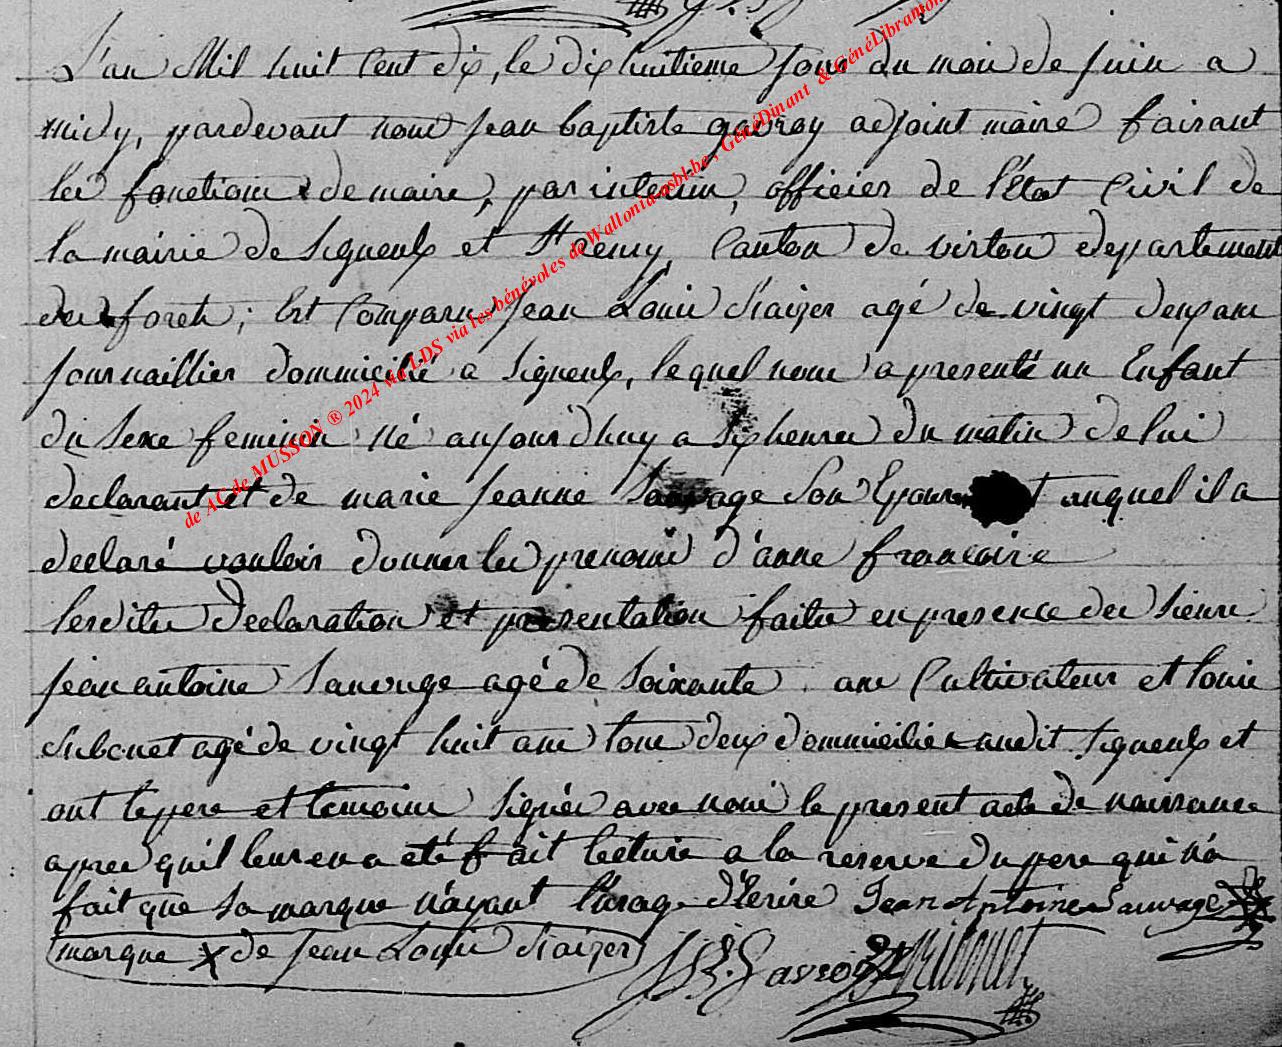 L'an Mil huit Cent dix, le dix huitieme jour du mois de juin a
midy, pardevant nous jean baptiste gavroy adjoint maire faisant
les fonctions de maire, par interim, officier de l'Etat Civil de
la mairie de Signeulx et St remy, Canton de virton departement
des forets; Est Comparu jean Louis agé de vingt deux ans
journaillier dommicilié a Signeulx, lequel nous a presenté un Enfant
du sexe feminin né aujourd'huy a six heures du matin de lui
declarant et de marie jeanne Sauvage son Epouse et auquel il a
declaré vouloir donner les prenoms d'anne francoise
lesdites declaration et presentation faites en presence des sieurs
jean antoine Sauvage agé de soixante ans Cultivateur et louis
agé de vingt huit ans tous deux dommiciliés audit Signeulx et
ont le pere et temoins signés avec nous le present acte de naissance
apres qu'il leur en a eté fait lecture a la reserve du pere qui n'a
fait que sa marque n'ayant l'usage d'Ecrire Jean Antoine Sauvage
marque X de jean Louis
J B Gavroy
de AC de MUSSON ® 2024 via LDS via les bénévoles de Wallonia-asbl.be, GénéDinant & GénéLibramont